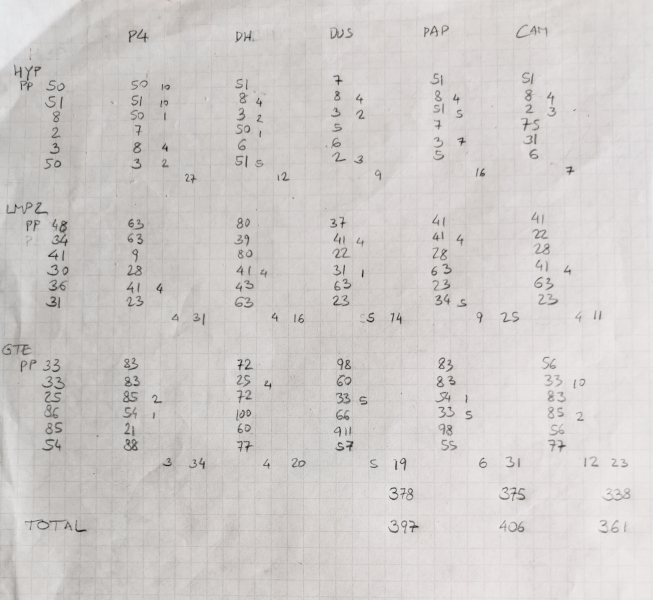 P4 DH. DUS PAP CAM
HYP
PP 50 50 10 51 7 51 51
51 51 10 8 4 8 4 8 4 8 4
8 50 1 3 2 3 2 51 5 2 3
2 7 50 1 5 7 75
3 8 4 6 6 3 7 31
50 3 2 51 5 2 3 5 6
27 12 9 16 7
LMP2
PP 48 63 80 37 41 41
34 63 39 41 4 41 4 22
41 9 80 22 28 28
30 28 41 4 31 1 63 41 4
36 41 4 43 63 23 63
31 23 63 23 34 5 23
4 31 4 16 5 14 9 25 4 11
GTE
PP 33 83 72 98 83 56
33 83 25 4 60 83 33 10
25 85 2 72 33 5 54 1 83
86 54 1 100 66 33 5 85 2
85 21 60 911 98 56
54 88 77 57 55 77
3 34 4 20 5 19 6 31 12 23
378 375 338
TOTAL 397 406 361